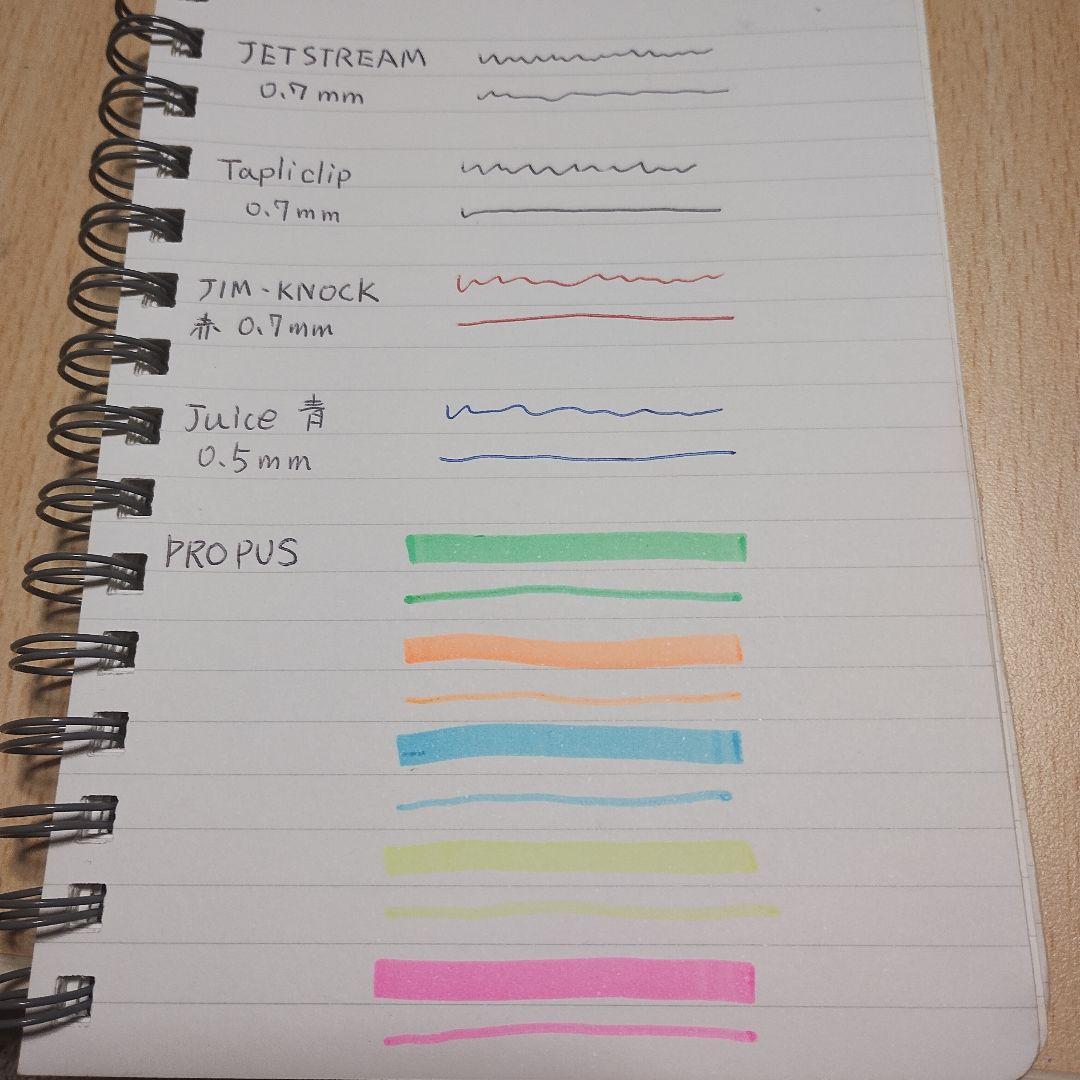 JETSTREAM
0.7mm
Tapliclip
0.7mm
JIM-KNOCK
赤 0.7mm
Juice 青
0.5mm
PROPUS